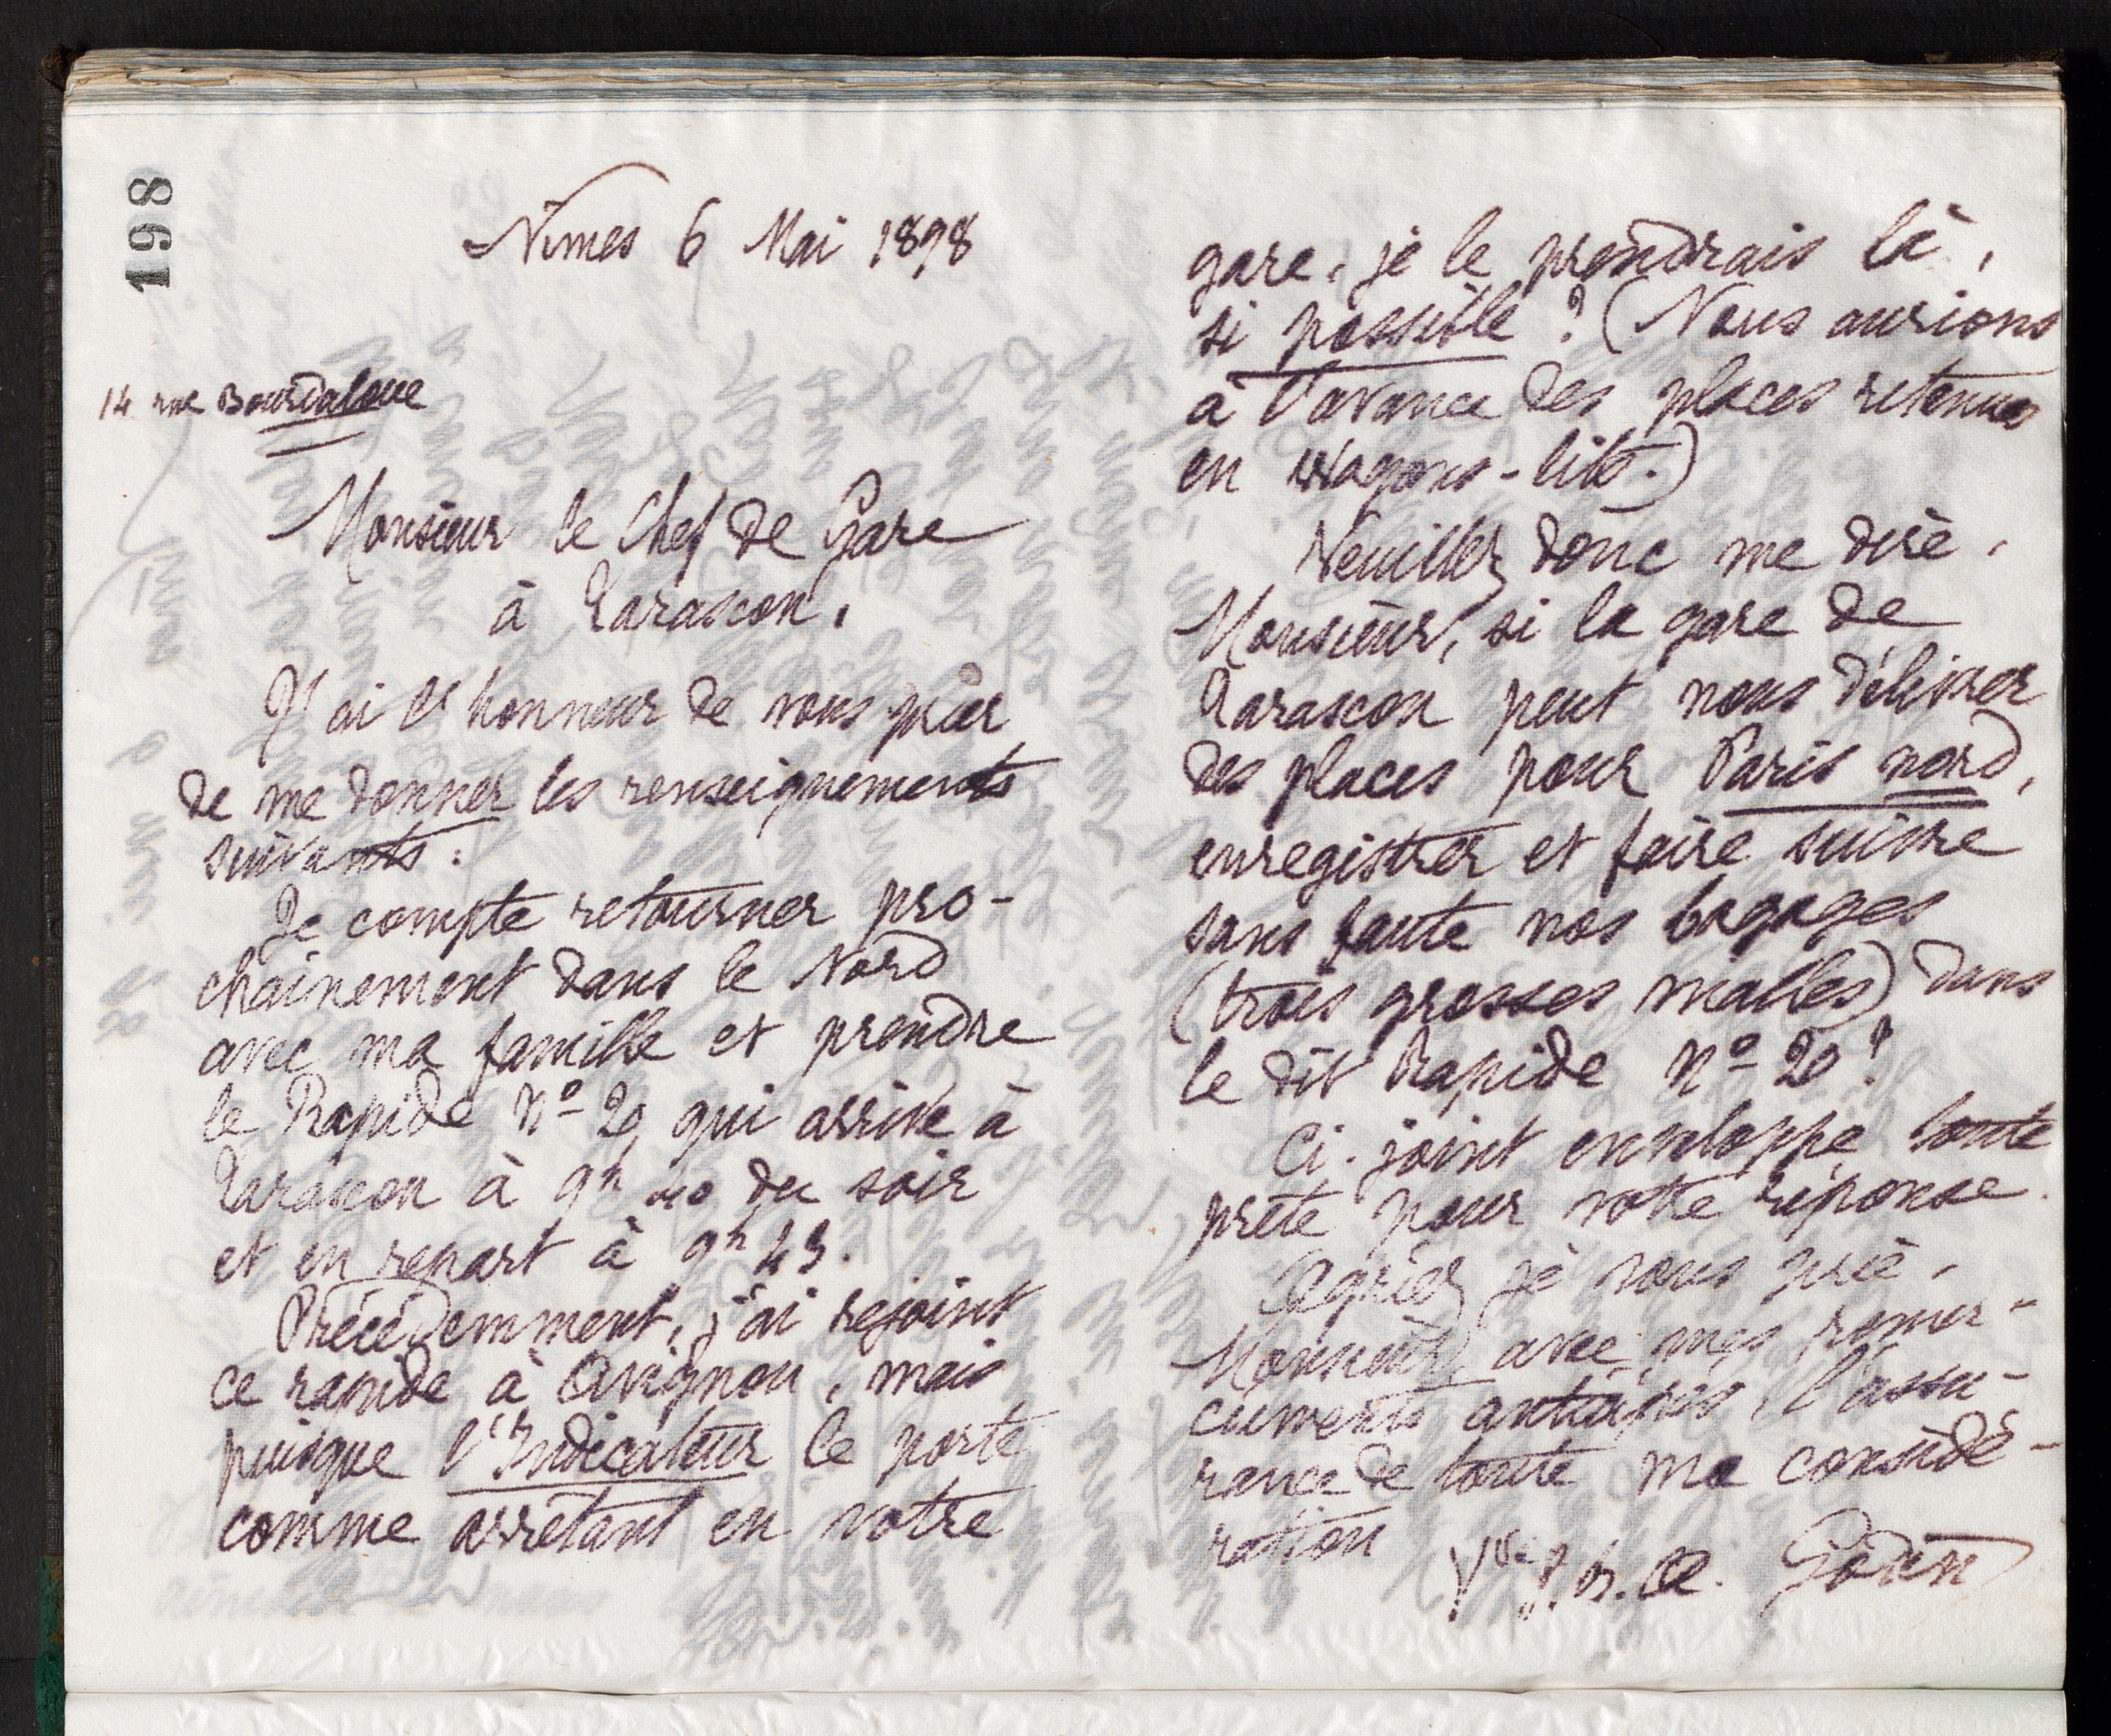 198
Nimes 6 Mai 1898
14 rue Bourdaloue
Monsieur le Chef de Gare
à Tarascon,
J'ai l'honneur de vous prier
de me donner les renseignements
suivants :
Je compte retourner pro-
chainement dans le Nord
avec ma famille et prendre
le Rapide nº 20 qui arrive à
Tarascon à 9h 40 du soir
et en repart à 9h 43.
Précédemment, j'ai rejoint
ce rapide à Avignon, mais
puisque l'Indicateur le porte
comme arrêtant en votre
gare, je le prendrais là,
si possible ? (Nous aurions
à l'avance des places retenues
en wagons-lits.)
Veuillez donc me dire,
Monsieur, si la gare de
Tarascon peut nous délivrer
des places pour Paris nord,
enregistrer et faire suivre
sans faute nos bagages
(trois grosses malles) dans
le dit Rapide nº 20 ?
Ci-joint enveloppe toute
prête pour votre réponse.
Agréez je vous prie,
Monsieur, avec mes remer-
ciements anticipés, l'assu-
rance de toute ma considé-
ration
Vve J. B. A. Godin